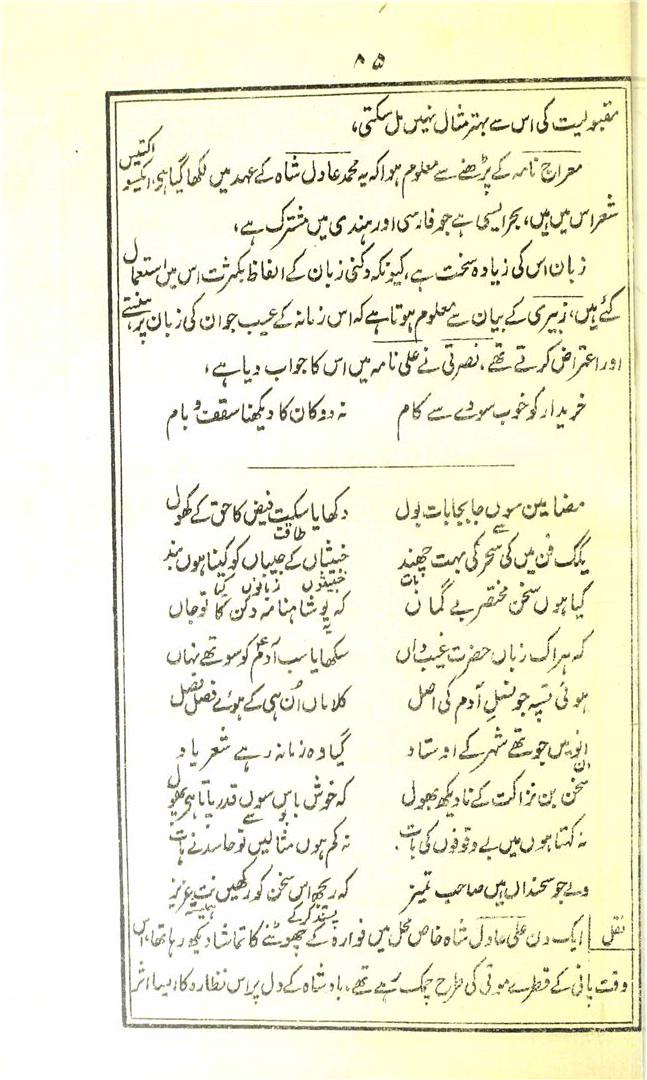 ۸۵
مقبولیت کی اس سے بہتر مثال نہیں مل سکتی،
معراج نامہ کے پڑھنے سے معلوم ہوا کہ یہ محمد عادل شاہ کے عہد میں لکھا گیا ہی، ایکسو اکتیس
شعر اس میں ہیں، بحر ایسی ہے جو فارسی اور ہندی میں مشترک ہے،
زبان اس کی زیادہ سخت ہے، کیونکہ دکنی زبان کے الفاظ بکثرت اس میں استعمال
کئے ہیں، زبیری کے بیان سے معلوم ہوتا ہے کہ اس زمانہ کے عیب جو ان کی زبان پر ہنستے
اور اعتراض کرتے تھے، نصرتی نے علی نامہ میں اس کا جواب دیا ہے،
خریدار کو خوب سودے سے کام نہ دوکان کا دیکھنا سقف و بام
مضامین سوں جابجا بات بول دکھایا سکت فیض کا حق کے کھول
سے طاقت
یکگ فن میں کی سحر کی بہت چھند خبیثاں کے جیباں کو کیتا ہوں بند
بات خبیثوں زبانوں کیا
کیا ہوں سخن مختصر بے گماں کہ یو شاہنامہ دکن کا تو جاں
یہ
کہ ہر اک زباں حضرت غیب داں سکھایا سب آدمؑ کو سو تھے نہاں
ہوئی تسپہ جو نسل آدم کی اصل کلاماں ان ہی کے ہوئے فصل فصل
انویں جو تھے شہر کے اوستاد گیا وہ زمانہ رہے شعر یاد
ان
سخن بن نزاکت کے نا دیکھ بھول کہ خوش باس سوں قدر پاتا ہی پھول
بو سے
نہ کہتا ہوں میں بے وقوفوں کی بات نہ کم ہوں مثالیں تو حاسد نے ہات
ولے جو سخنداں ہیں صاحب تمیز کہ ریجھ اس سخن کو رکھیں نت عزیز
پسند کر کے ہمیشہ
نقل ایک دن علی عادل شاہ خاص محل میں فوارہ کے چھوٹنے کا تماشا دیکھ رہا تھا، اس
وقت پانی کے قطرے موتی کی طرح چمک رہے تھے، بادشاہ کے دل پر اس نظارہ کا ایسا اثر